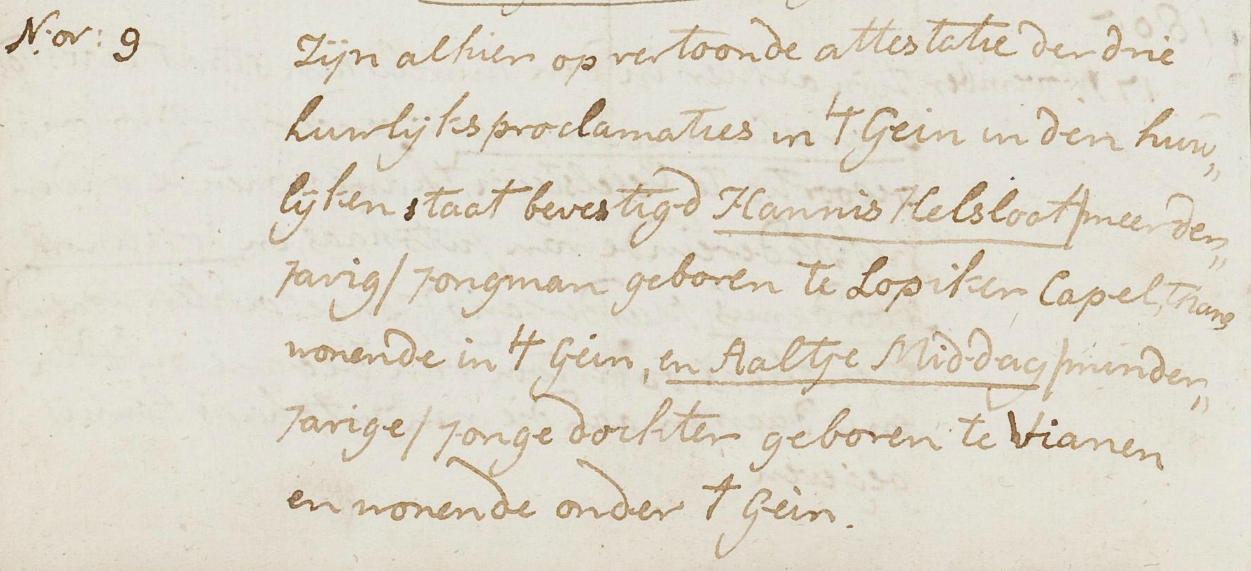 Nov: 9 Zijn alhier op vertoonde attestatie der drie
huwlijks proclamaties in 't Gein in den huw„
lijken staat bevestigd Hannis Helsloot /meerder„
jarig/ jongman geboren te Lopiker Capel, thans
wonende in 't Gein, en Aaltje Middag /minder„
jarige/ jonge dochter geboren te Vianen
en wonende onder 't Gein.